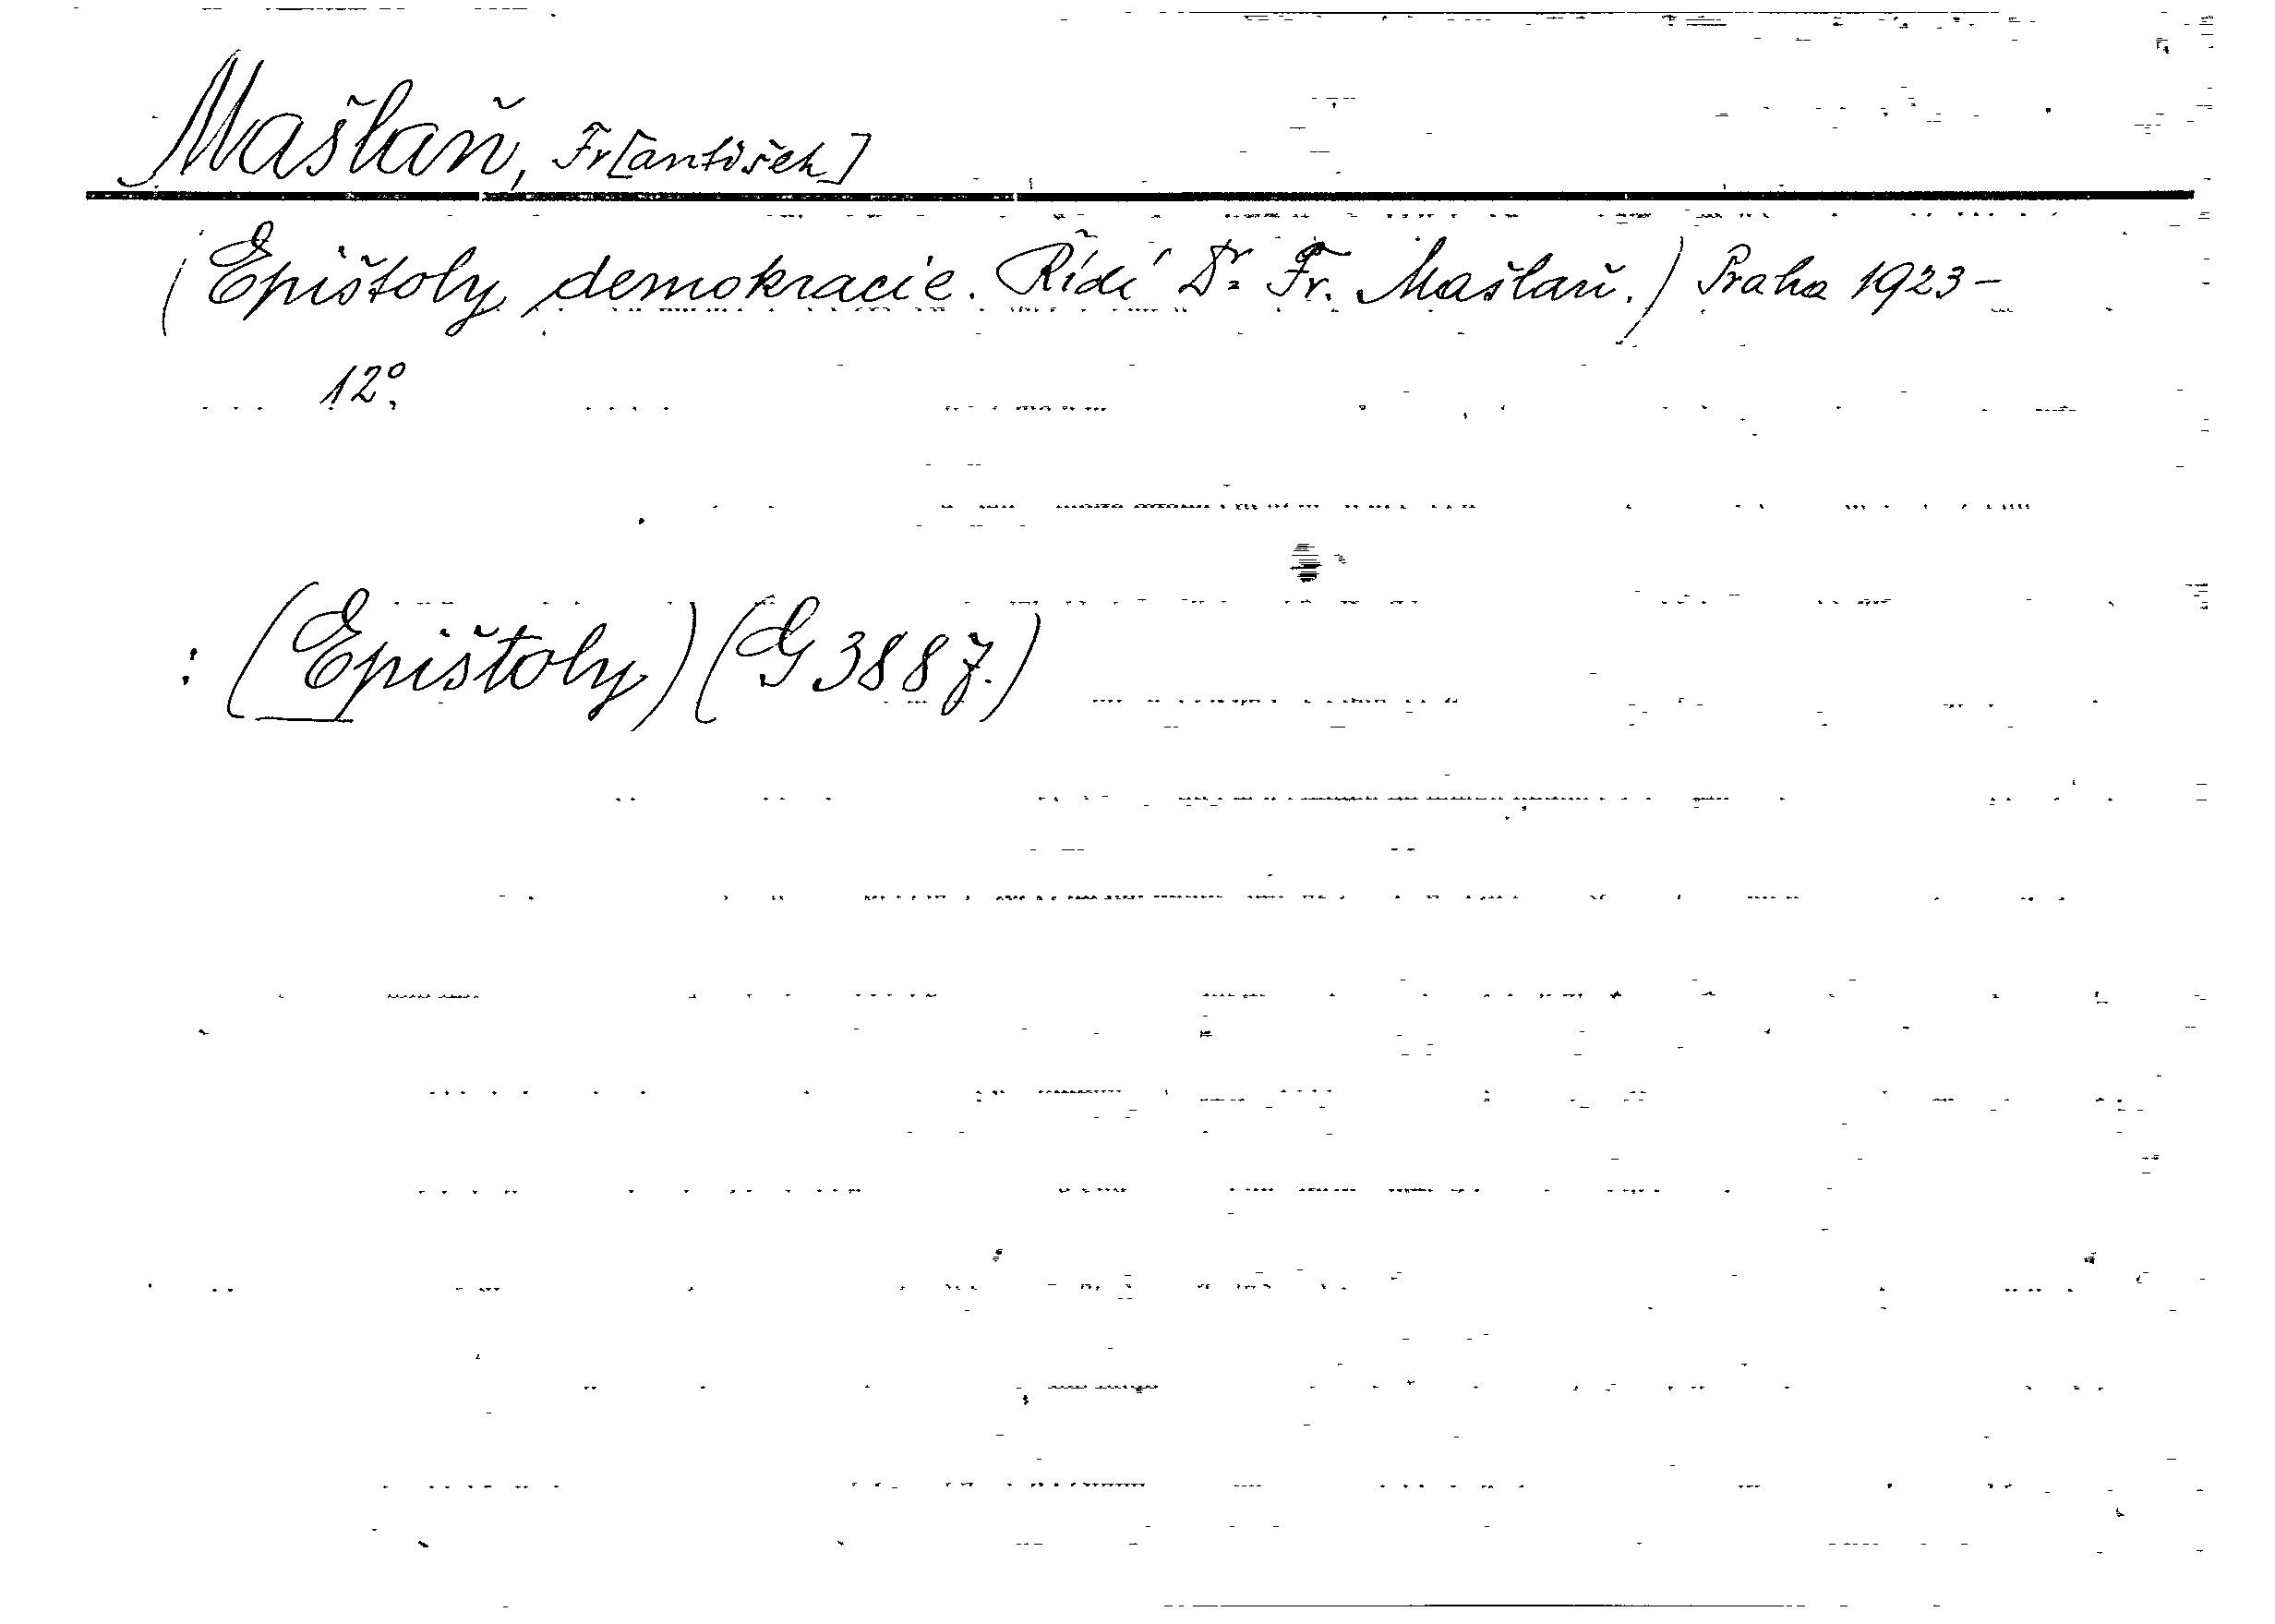 Mašlaň, Fr[antišek]
(Epištoly demokracie. Řídí Dr. Fr. Mašlaň.) Praha 1923-
12°.
: (Epištoly) (G 3887.)